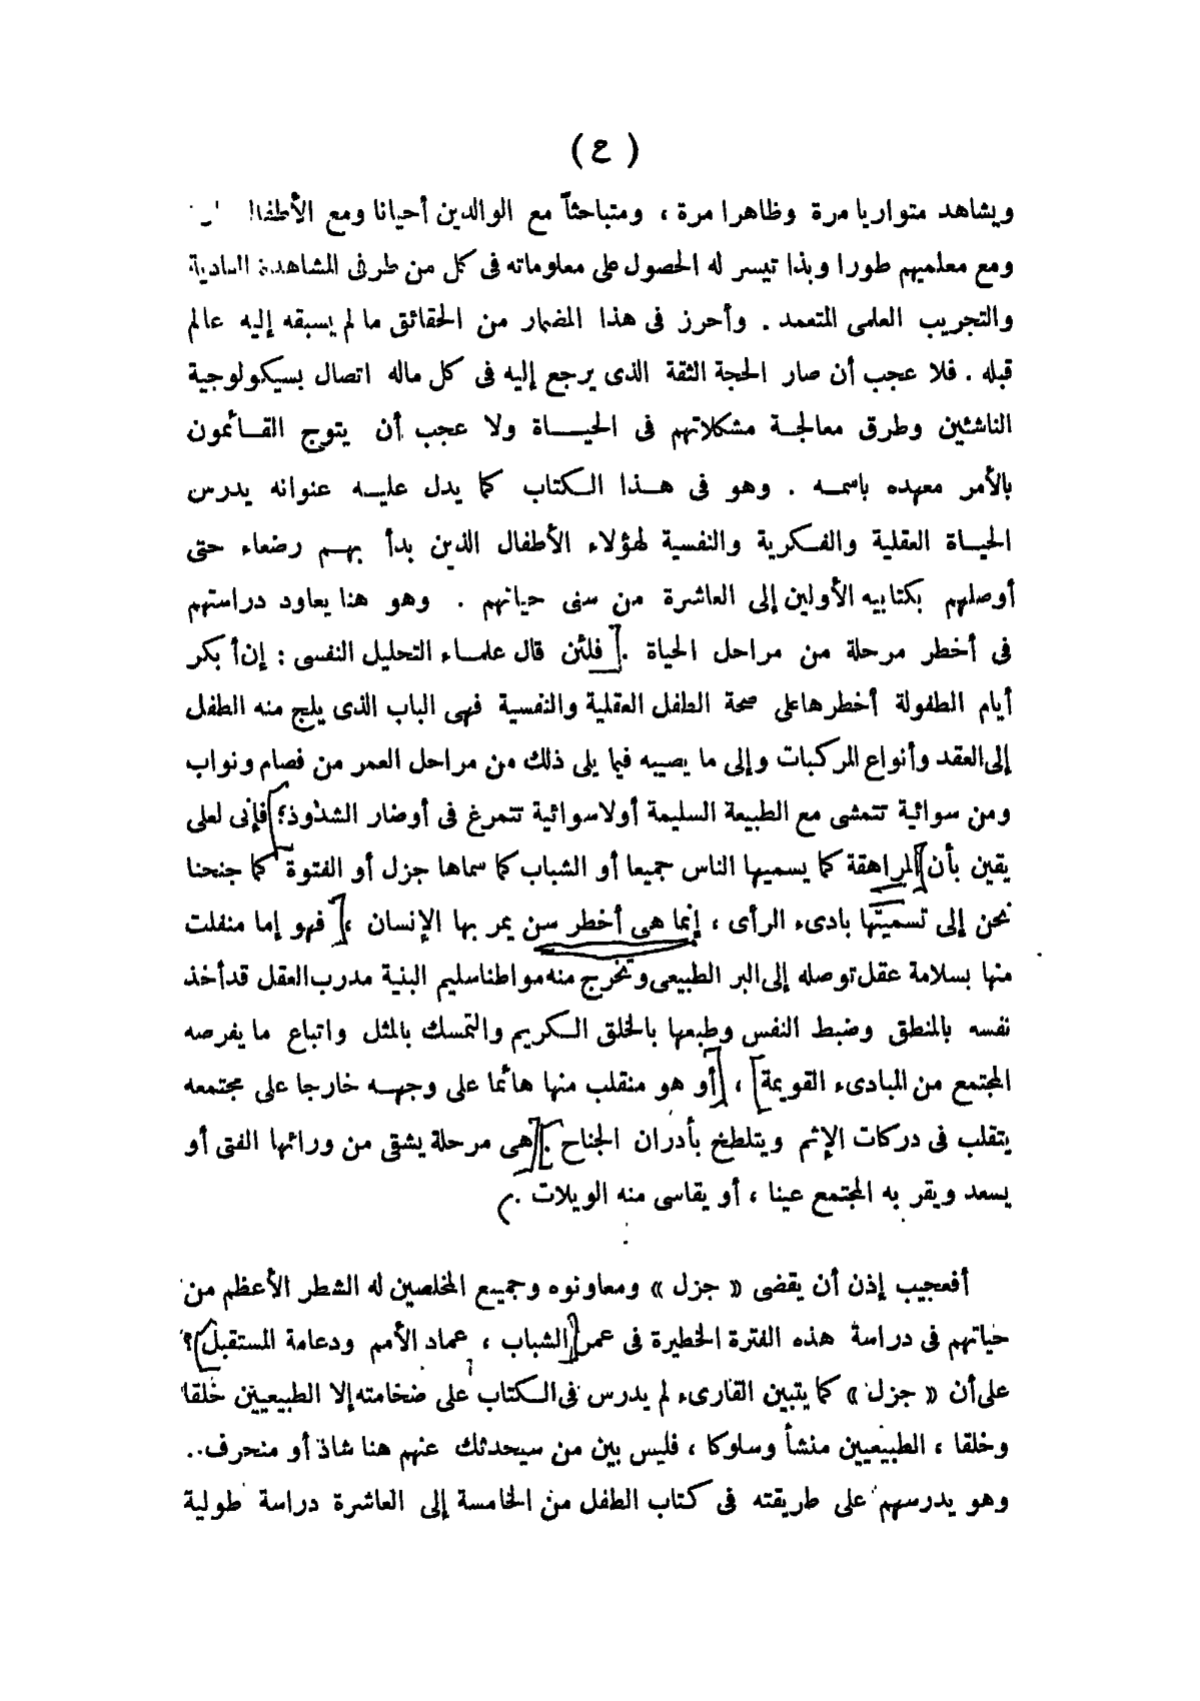 ( ع )
ويشاهد متواريا مرة وظاهرا مرة ، ومتباحثاً مع الوالدين أحيانا ومع الأطفال
ومع معلميهم طورا وبذا تيسر له الحصول على معلوماته فى كل من طرفى المشاهدة المادية
والتجريب العلمى المتعمد . وأحرز فى هذا المضمار من الحقائق ما لم يسبقه إليه عالم
قبله . فلا عجب أن صار الحجة الثقة الذى يرجع إليه فى كل ماله اتصال بسيكولوجية
الناشئين وطرق معالجة مشكلاتهم فى الحياة ولا عجب أن يتوج القائمون
بالأمر معهده باسمه . وهو فى هذا الكتاب كما يدل عليه عنوانه يدرس
الحياة العقلية والفكرية والنفسية لهؤلاء الأطفال الذين بدأ بهم رضعاء حتى
أوصلهم بكتابيه الأولين إلى العاشرة من سنى حياتهم . وهو هنا يعاود دراستهم
فى أخطر مرحلة من مراحل الحياة . فلئن قال علماء التحليل النفسى : إن أبكر
أيام الطفولة أخطرها على صحة الطفل العقلية والنفسية فهى الباب الذى يلج منه الطفل
إلى العقد وأنواع المركبات وإلى ما يصيبه فيما يلى ذلك من مراحل العمر من فصام ونواب
ومن سوائية تتمشى مع الطبيعة السليمة أولاسوائية تتمرغ فى أوضار الشذوذ؛ فإنى لعلى
يقين بأن المراهقة كما يسميها الناس جميعا أو الشباب كما سماها جزل أو الفتوة كما جنحنا
نحن إلى تسميتها بادىء الرأى ، إنما هى أخطر سن يمر بها الإنسان ، فهو إما منفلت
منها بسلامة عقل توصله إلى البر الطبيعى وتخرج منه مواطنا سليم البنية مدرب العقل قد أخذ
نفسه بالمنطق وضبط النفس وطبعها بالخلق الكريم والتمسك بالمثل واتباع ما يفرصه
المجتمع من المبادىء القويمة ، أو هو منقلب منها هائما على وجهه خارجا على مجتمعه
يتقلب فى دركات الإثم ويتلطخ بأدران الجناح . هى مرحلة يشقى من ورائها الفتى أو
يسعد ويقر به المجتمع عينا ، أو يقاسى منه الويلات .
أفعجيب إذن أن يقضى « جزل » ومعاونوه وجميع المخلصين له الشطر الأعظم من
حياتهم فى دراسة هذه الفترة الخطيرة فى عمر الشباب ، عماد الأمم ودعامة المستقبل ؟
على أن « جزل » كما يتبين القارىء لم يدرس فى الكتاب على ضخامته إلا الطبيعيين خلقا
وخلقا ، الطبيعيين منشأ وسلوكا ، فليس بين من سيحدثك عنهم هنا شاذ أو منحرف..
وهو يدرسهم على طريقته فى كتاب الطفل من الخامسة إلى العاشرة دراسة طولية